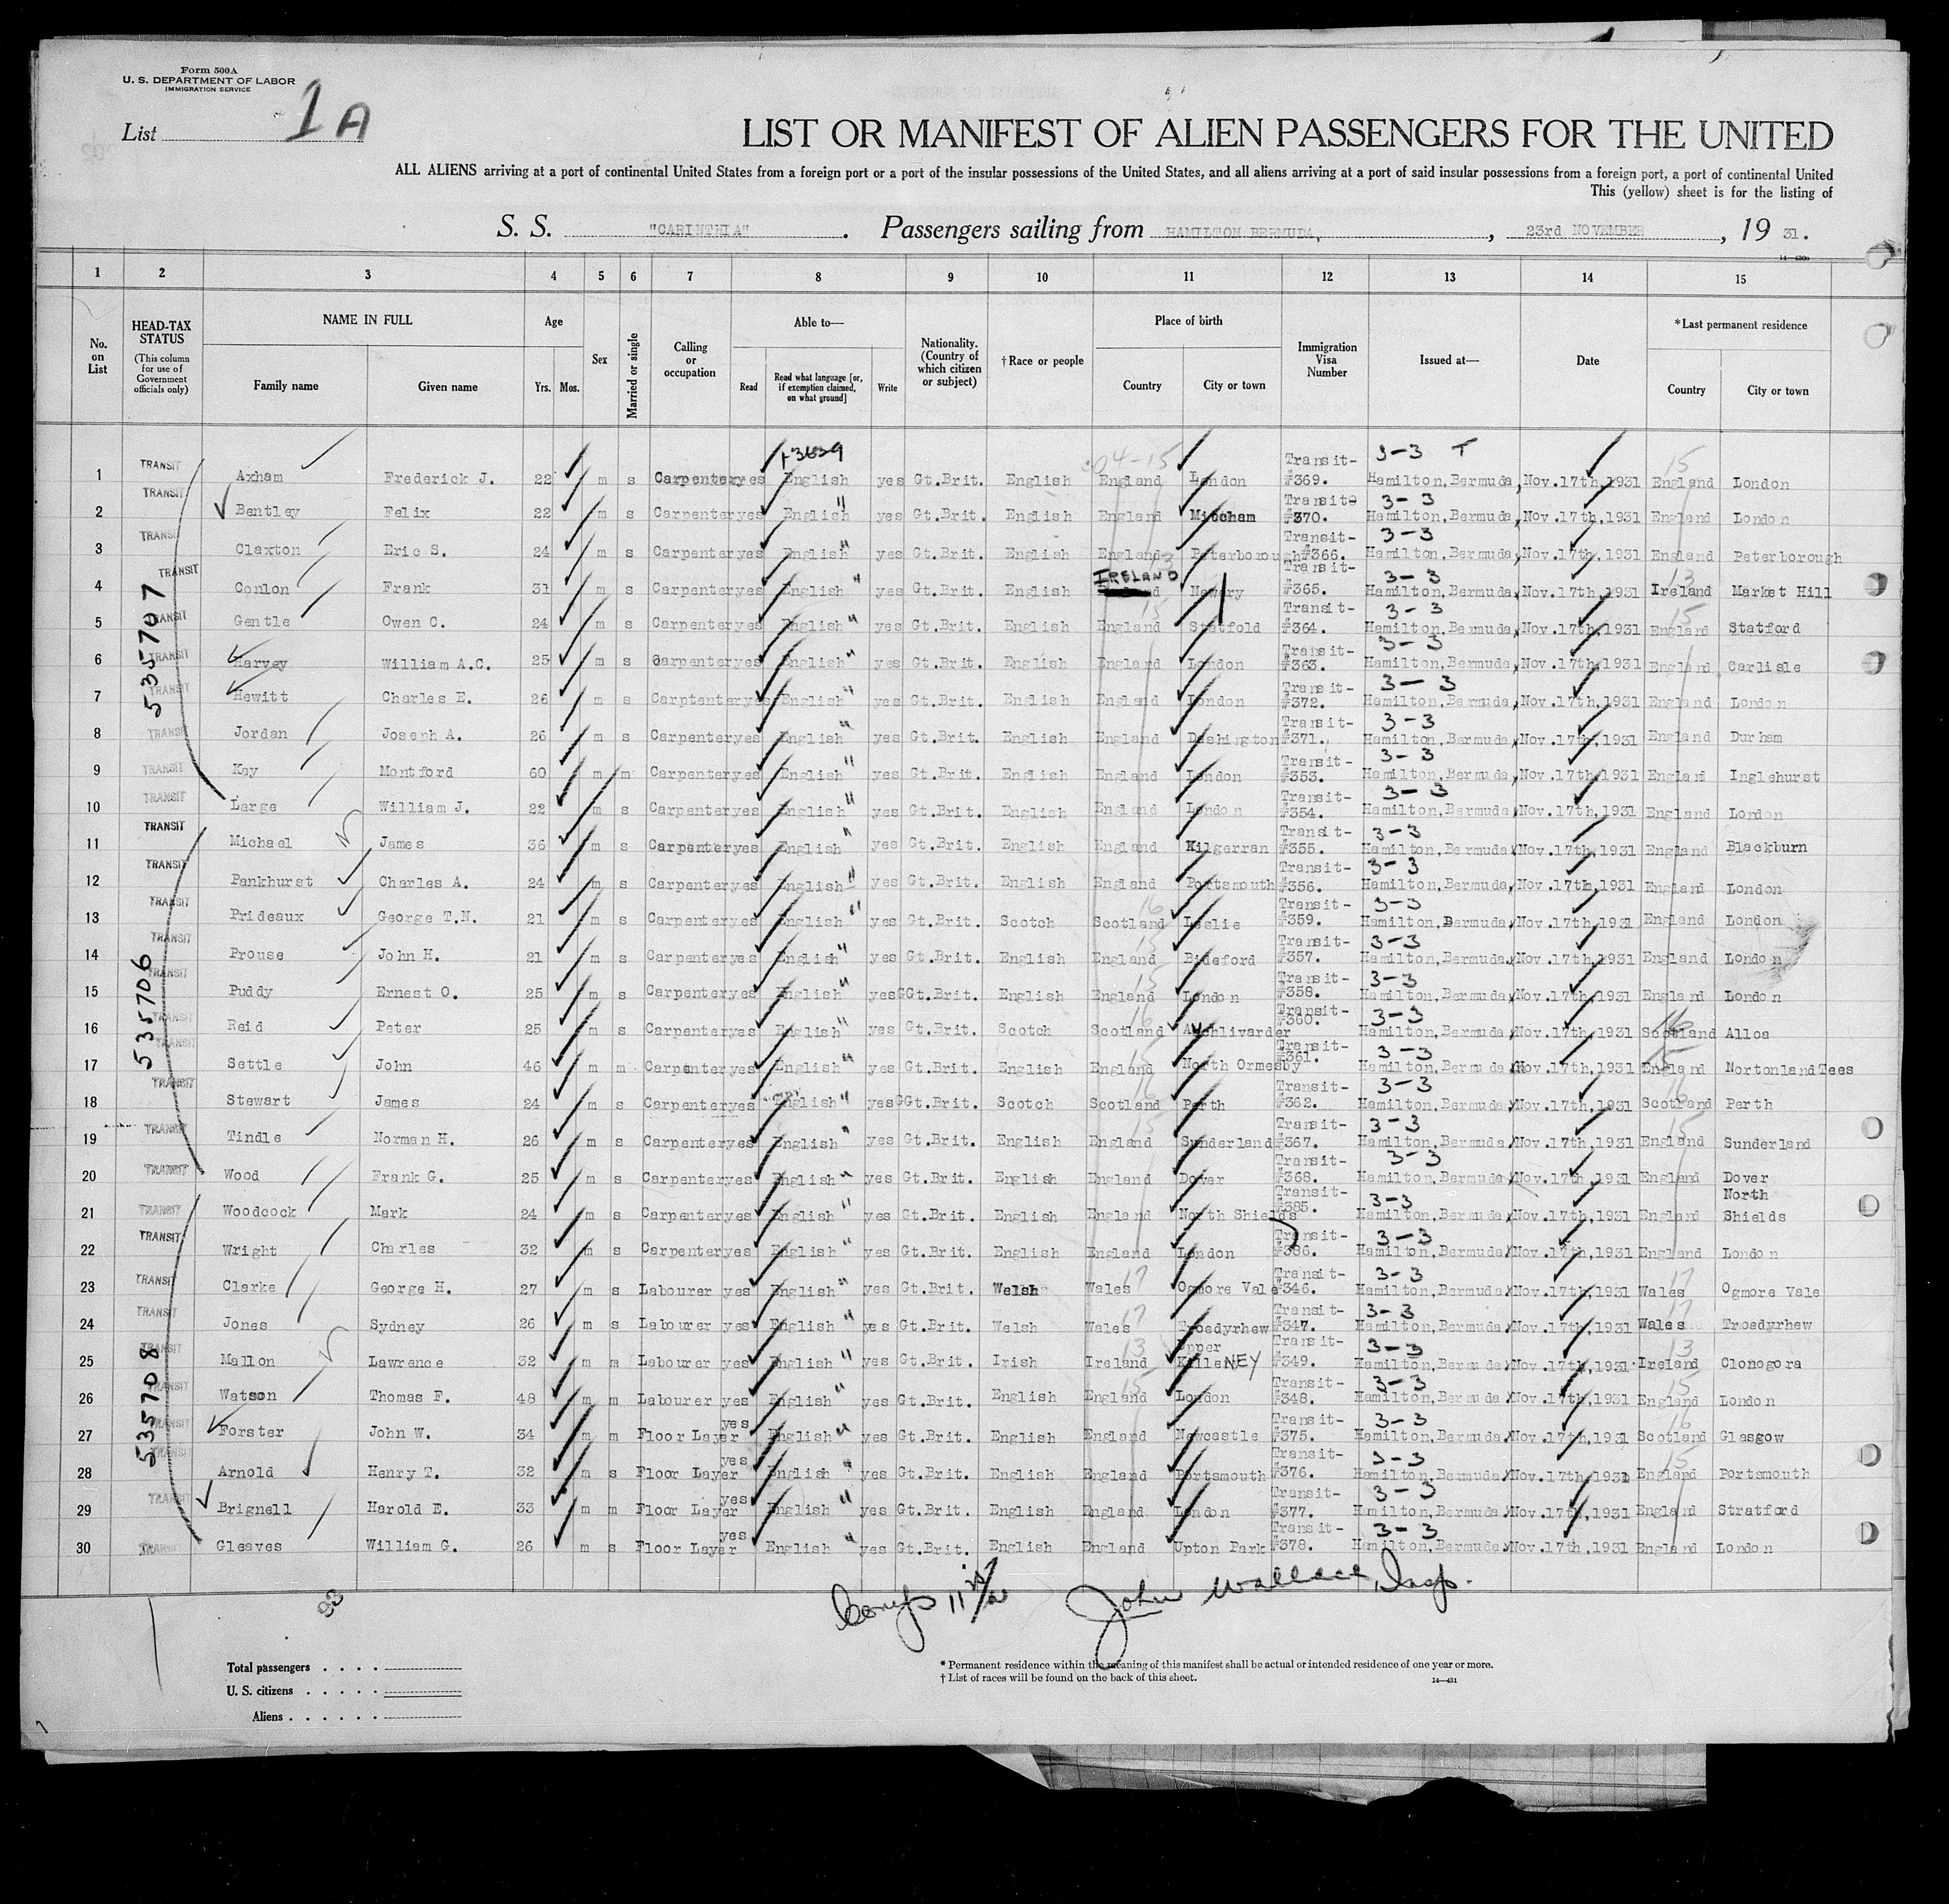 Form 500A
U. S. DEPARTMENT OF LABOR
IMMIGRATION SERVICE
List 1A
LIST OR MANIFEST OF ALIEN PASSENGERS FOR THE UNITED
ALL ALIENS arriving at a port of continental United States from a foreign port or a port of the insular possessions of the United States, and all aliens arriving at a port of said insular possessions from a foreign port, a port of continental United
This (yellow) sheet is for the listing of
S. S. "CARINTHIA". Passengers sailing from HAMILTON BERMUDA, , 23rd NOVEMBER , 19 31.
14—430a
1 2 3 4 5 6 7 8 9 10 11 12 13 14 15
No. on List
HEAD-TAX STATUS (This column for use of Government officials only)
NAME IN FULL
Family name Given name
Age
Yrs. Mos.
Sex
Married or single
Calling or occupation
Able to—
Read Read what language [or, if exemption claimed, on what ground] Write
Nationality. (Country of which citizen or subject)
†Race or people
Place of birth
Country City or town
Immigration Visa Number
Issued at—
Date
*Last permanent residence
Country City or town
04-15 3-3 T 15
1 TRANSIT Axham Frederick J. 22 m s Carpenter yes English yes Gt.Brit. English England London Transit- #369. Hamilton,Bermuda, Nov.17th,1931 England London
2 TRANSIT Bentley Felix 22 m s Carpenter yes English " yes Gt.Brit. English England Mitcham Transit #370. 3-3 Hamilton,Bermuda, Nov.17th,1931 England London
3 TRANSIT Claxton Eric S. 24 m s Carpenter yes English " yes Gt.Brit. English England Peterborough Transit- #366. 3-3 Hamilton,Bermuda, Nov.17th,1931 England Peterborough
4 TRANSIT Conlon Frank 31 m s Carpenter yes English " yes Gt.Brit. English IRELAND Newry Transit- #365. 3-3 Hamilton,Bermuda, Nov.17th,1931 Ireland Market Hill
5 TRANSIT Gentle Owen C. 24 m s Carpenter yes English " yes Gt.Brit. English England Statfold Transit- #364. 3-3 Hamilton,Bermuda, Nov.17th,1931 England Statford
6 TRANSIT Harvey William A.C. 25 m s Carpenter yes English " yes Gt.Brit. English England London Transit- #363. 3-3 Hamilton,Bermuda, Nov.17th,1931 England Carlisle
7 TRANSIT Hewitt Charles E. 26 m s Carptenter yes English " yes Gt.Brit. English England London Transit- #372. 3-3 Hamilton,Bermuda, Nov.17th,1931 England London
8 TRANSIT Jordan Joseph A. 26 m s Carpenter yes English " yes Gt.Brit. English England Dashington Transit- #371. 3-3 Hamilton,Bermuda, Nov.17th,1931 England Durham
9 TRANSIT Kay Montford 60 m m Carpenter yes English " yes Gt.Brit. English England London Transit- #353. 3-3 Hamilton,Bermuda, Nov.17th,1931 England Inglehurst
10 TRANSIT Large William J. 22 m s Carpenter yes English " yes Gt.Brit. English England London Transit- #354. 3-3 Hamilton,Bermuda, Nov.17th,1931 England London
535707
11 TRANSIT Michael James 36 m s Carpenter yes English " yes Gt.Brit. English England Kilgerran Transit- #355. 3-3 Hamilton,Bermuda, Nov.17th,1931 England Blackburn
12 TRANSIT Pankhurst Charles A. 24 m s Carpenter yes English " yes Gt.Brit. English England Portsmouth Transit- #356. 3-3 Hamilton,Bermuda, Nov.17th,1931 England London
13 TRANSIT Prideaux George T.N. 21 m s Carpenter yes English " yes Gt.Brit. Scotch Scotland Leslie Transit- #359. 3-3 Hamilton,Bermuda, Nov.17th,1931 England London
14 TRANSIT Prouse John H. 21 m s Carpenter yes English " yes Gt.Brit. English England Bideford Transit- #357. 3-3 Hamilton,Bermuda, Nov.17th,1931 England London
15 TRANSIT Puddy Ernest O. 25 m s Carpenter yes English " yes Gt.Brit. English England London Transit- #358. 3-3 Hamilton,Bermuda, Nov.17th,1931 England London
16 TRANSIT Reid Peter 25 m s Carpenter yes English " yes Gt.Brit. Scotch Scotland Transit- #360. 3-3 Hamilton,Bermuda, Nov.17th,1931 Scotland Alloa
17 TRANSIT Settle John 46 m m Carpenter yes English " yes Gt.Brit. English England North Ormesby Transit- #361. 3-3 Hamilton,Bermuda, Nov.17th,1931 England NortonlandTees
18 TRANSIT Stewart James 24 m s Carpenter yes English " yes Gt.Brit. Scotch Scotland Perth Transit- #362. 3-3 Hamilton,Bermuda, Nov.17th,1931 Scotland Perth
19 TRANSIT Tindle Norman H. 26 m s Carpenter yes English " yes Gt.Brit. English England Sunderland Transit- #367. 3-3 Hamilton,Bermuda, Nov.17th,1931 England Sunderland
20 TRANSIT Wood Frank G. 25 m s Carpenter yes English " yes Gt.Brit. English England Dover Transit- #368. 3-3 Hamilton,Bermuda, Nov.17th,1931 England Dover
535706
21 TRANSIT Woodcock Mark 24 m s Carpenter yes English " yes Gt.Brit. English England North Shields Transit- #385. 3-3 Hamilton,Bermuda, Nov.17th,1931 England North Shields
22 TRANSIT Wright Charles 32 m s Carpenter yes English " yes Gt.Brit. English England London Transit- #386. 3-3 Hamilton,Bermuda, Nov.17th,1931 England London
23 TRANSIT Clarke George H. 27 m s Labourer yes English " yes Gt.Brit. Welsh Wales 17 Ogmore Vale Transit- #346. 3-3 Hamilton,Bermuda, Nov.17th,1931 Wales 17 Ogmore Vale
24 TRANSIT Jones Sydney 26 m s Labourer yes English " yes Gt.Brit. Welsh Wales 17 Troedyrhew Transit- #347. 3-3 Hamilton,Bermuda, Nov.17th,1931 Wales 17 Troedyrhew
25 TRANSIT Mallon Lawrence 32 m m Labourer yes English " yes Gt.Brit. Irish Ireland 13 Upper KilleNEY Transit- #349. 3-3 Hamilton,Bermuda, Nov.17th,1931 Ireland 13 Clonogora
26 TRANSIT Watson Thomas F. 48 m m Labourer yes English " yes Gt.Brit. English England 15 London Transit- #348. 3-3 Hamilton,Bermuda, Nov.17th,1931 England 15 London
27 TRANSIT Forster John W. 34 m m Floor Layer yes English " yes Gt.Brit. English England Newcastle Transit- #375. 3-3 Hamilton,Bermuda, Nov.17th,1931 Scotland 16 Glasgow
28 TRANSIT Arnold Henry T. 32 m s Floor Layer yes English " yes Gt.Brit. English England Portsmouth Transit- #376. 3-3 Hamilton,Bermuda, Nov.17th,1931 England 15 Portsmouth
29 TRANSIT Brignell Harold E. 33 m m Floor Layer yes English " yes Gt.Brit. English England London Transit- #377. 3-3 Hamilton,Bermuda, Nov.17th,1931 England Stratford
30 TRANSIT Gleaves William G. 26 m s Floor Layer yes English " yes Gt.Brit. English England Upton Park Transit- #378. 3-3 Hamilton,Bermuda, Nov.17th,1931 England London
535708
John Wallace, Insp.
Total passengers . . . .
U. S. citizens . . . . .
Aliens . . . . . .
* Permanent residence within the meaning of this manifest shall be actual or intended residence of one year or more.
† List of races will be found on the back of this sheet.
14—431